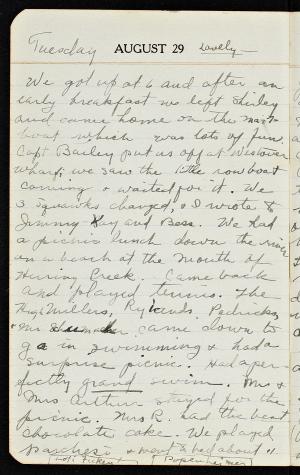 Tuesday AUGUST 29 Lovely
We got up at 6 and after an
early breakfast we left Shirley
and came home on the
boat which was lots of fun.
Capt Bailey put us off at Westover
wharf, we saw the little rowboat
coming & waited for it. We
3 squawks changed, & I wrote to
Jimmy Kay and Bess. We had
a picnic lunch down the river
on a beach at the mouth of
Herring Creek. Came back
and played tennis. The
Millers, Rylands,
& Mr came down to
go in swimming & had a
surprise picnic. Had a per-
fectly grand swim. Mr &
Mrs Arthur stayed for the
picnic. Mrs R. had the best
chocolate cake. We played
& went to bed about 11.